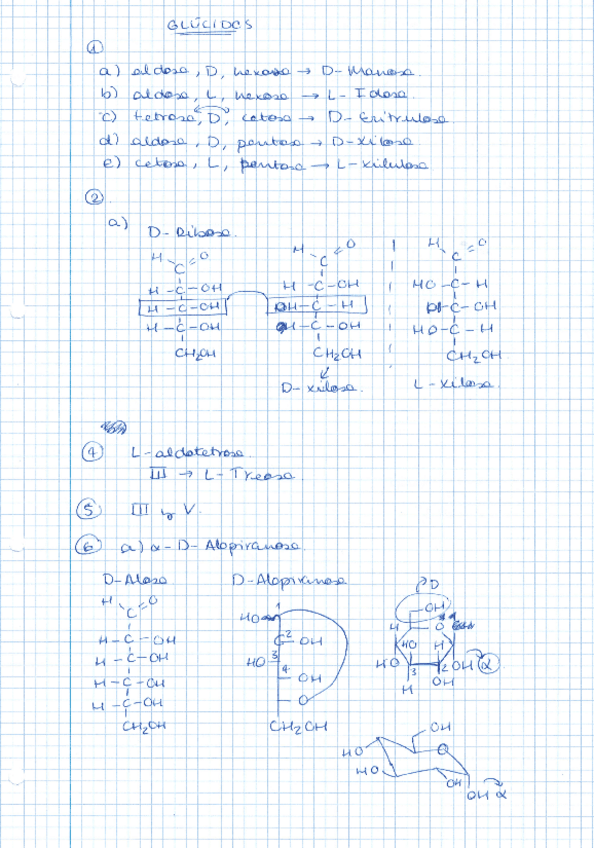 GLÚCIDOS
①
a) aldosa, D, hexosa → D-Manosa.
b) aldosa, L, hexosa → L-Idosa.
c) tetrosa, D, cetosa → D-Eritrulosa.
d) aldosa, D, pentosa → D-Xilosa
e) cetosa, L, pentosa → L-xilulosa
②
a) D-Ribosa.
H O H O H O
C C C
H-C-OH H-C-OH HO-C-H
H-C-OH OH-C-H H-C-OH
H-C-OH H-C-OH HO-C-H
CH2OH CH2OH CH2OH
D-xilosa. L-xilosa.
④ L-aldotetrosa.
III → L-Treosa.
⑤ III y V.
⑥ a) α-D-Alopiranosa.
D-Alosa D-Alopiranosa
H O
C
H-C-OH
H-C-OH
H-C-OH
H-C-OH
CH2OH
HO
C 2 OH
HO 3
4 OH
O
CH2OH
D
OH
H O
HO H
HO 3 2 OH α
H OH
OH
HO O
HO
OH
OH α